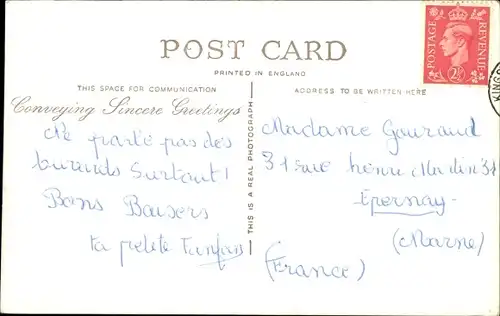 POST CARD
PRINTED IN ENGLAND
THIS SPACE FOR COMMUNICATION
ADDRESS TO BE WRITTEN HERE
Conveying Sincere Greetings
Ne parle pas des
Surtout!
Bons Baisers
ta petite
THIS IS A REAL PHOTOGRAPH
Madame Gouraud
31 rue henri Martin 31
Epernay
(Marne)
(France)
POSTAGE
REVENUE
2½